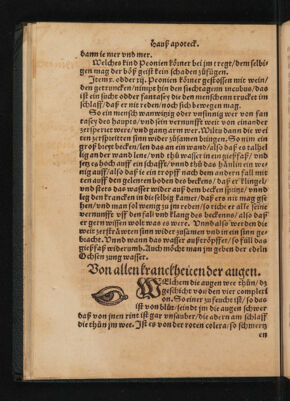 Hauß apoteck.
dann ie mer vnd mer.
Welches kind Peonien körner bei jm tregt/ dem selbi-
gen mag der böß geist kein schaden zůfügen.
Item x. odder xij. Peonien körner gestossen mit wein/
den getruncken/ nimpt hin den siechtagenn incubus/ das
ist ein sucht odder fantasei die den menschenn trucket im
schlaff/ daß er nit reden/ noch sich bewegen mag.
So ein mensch wanwizig oder vnsinnig wer von fan
tasey des haupts/ vnd sein vernunfft weit von einander
zersperiet were/ vnd gantz arm wer. Wiltu dann die wei
ten zersperten sinn wider zůsamen bringen. So nim ein
groß beyt becken/ len das an ein wand/ also daß es tal hel
lig an der wand lene/ vnd thů wasser in ein gießfaß/ vnd
setz es hoch auff ein schafft/ vnnd thů das hänlin ein we
nig auff/ also daß ie ein tropff nach dem andern fall mit
ten auff den gelenen boden des beckens/ daß er klingel/
vnd stets das wasser wider auß dem becken springt/ vnnd
leg den krancken in die selbig kamer/ daß ers nit mag ge se
hen/ vnd man sol wenig zu jm reden/ so richt er alle seine
vernunfft vff den fall vnnd klang des beckenns/ also daß
er gern wissen wolt was es were. Vnnd also werden die
weit zerstrawten sinn wider zusamen vnd in ein sinn ge-
bracht. Vnnd wann das wasser außtröpffet/ so füll das
gießfaß widerumb. Auch möcht man jm geben der edeln
Ochsen zung wasser.
Von allen kranckheiten der augen.
WElchem die augen wee thun/ dz
geschicht von den vier complexi
on. So einer zu feucht ist/ so das
ist von blůt/ seind jm die augen schwer
daß von jnen rint ist gar vnsauber/ die adern am schlaff
die thůn jm wee. Ist es von der roten colera/ so schmertz
en